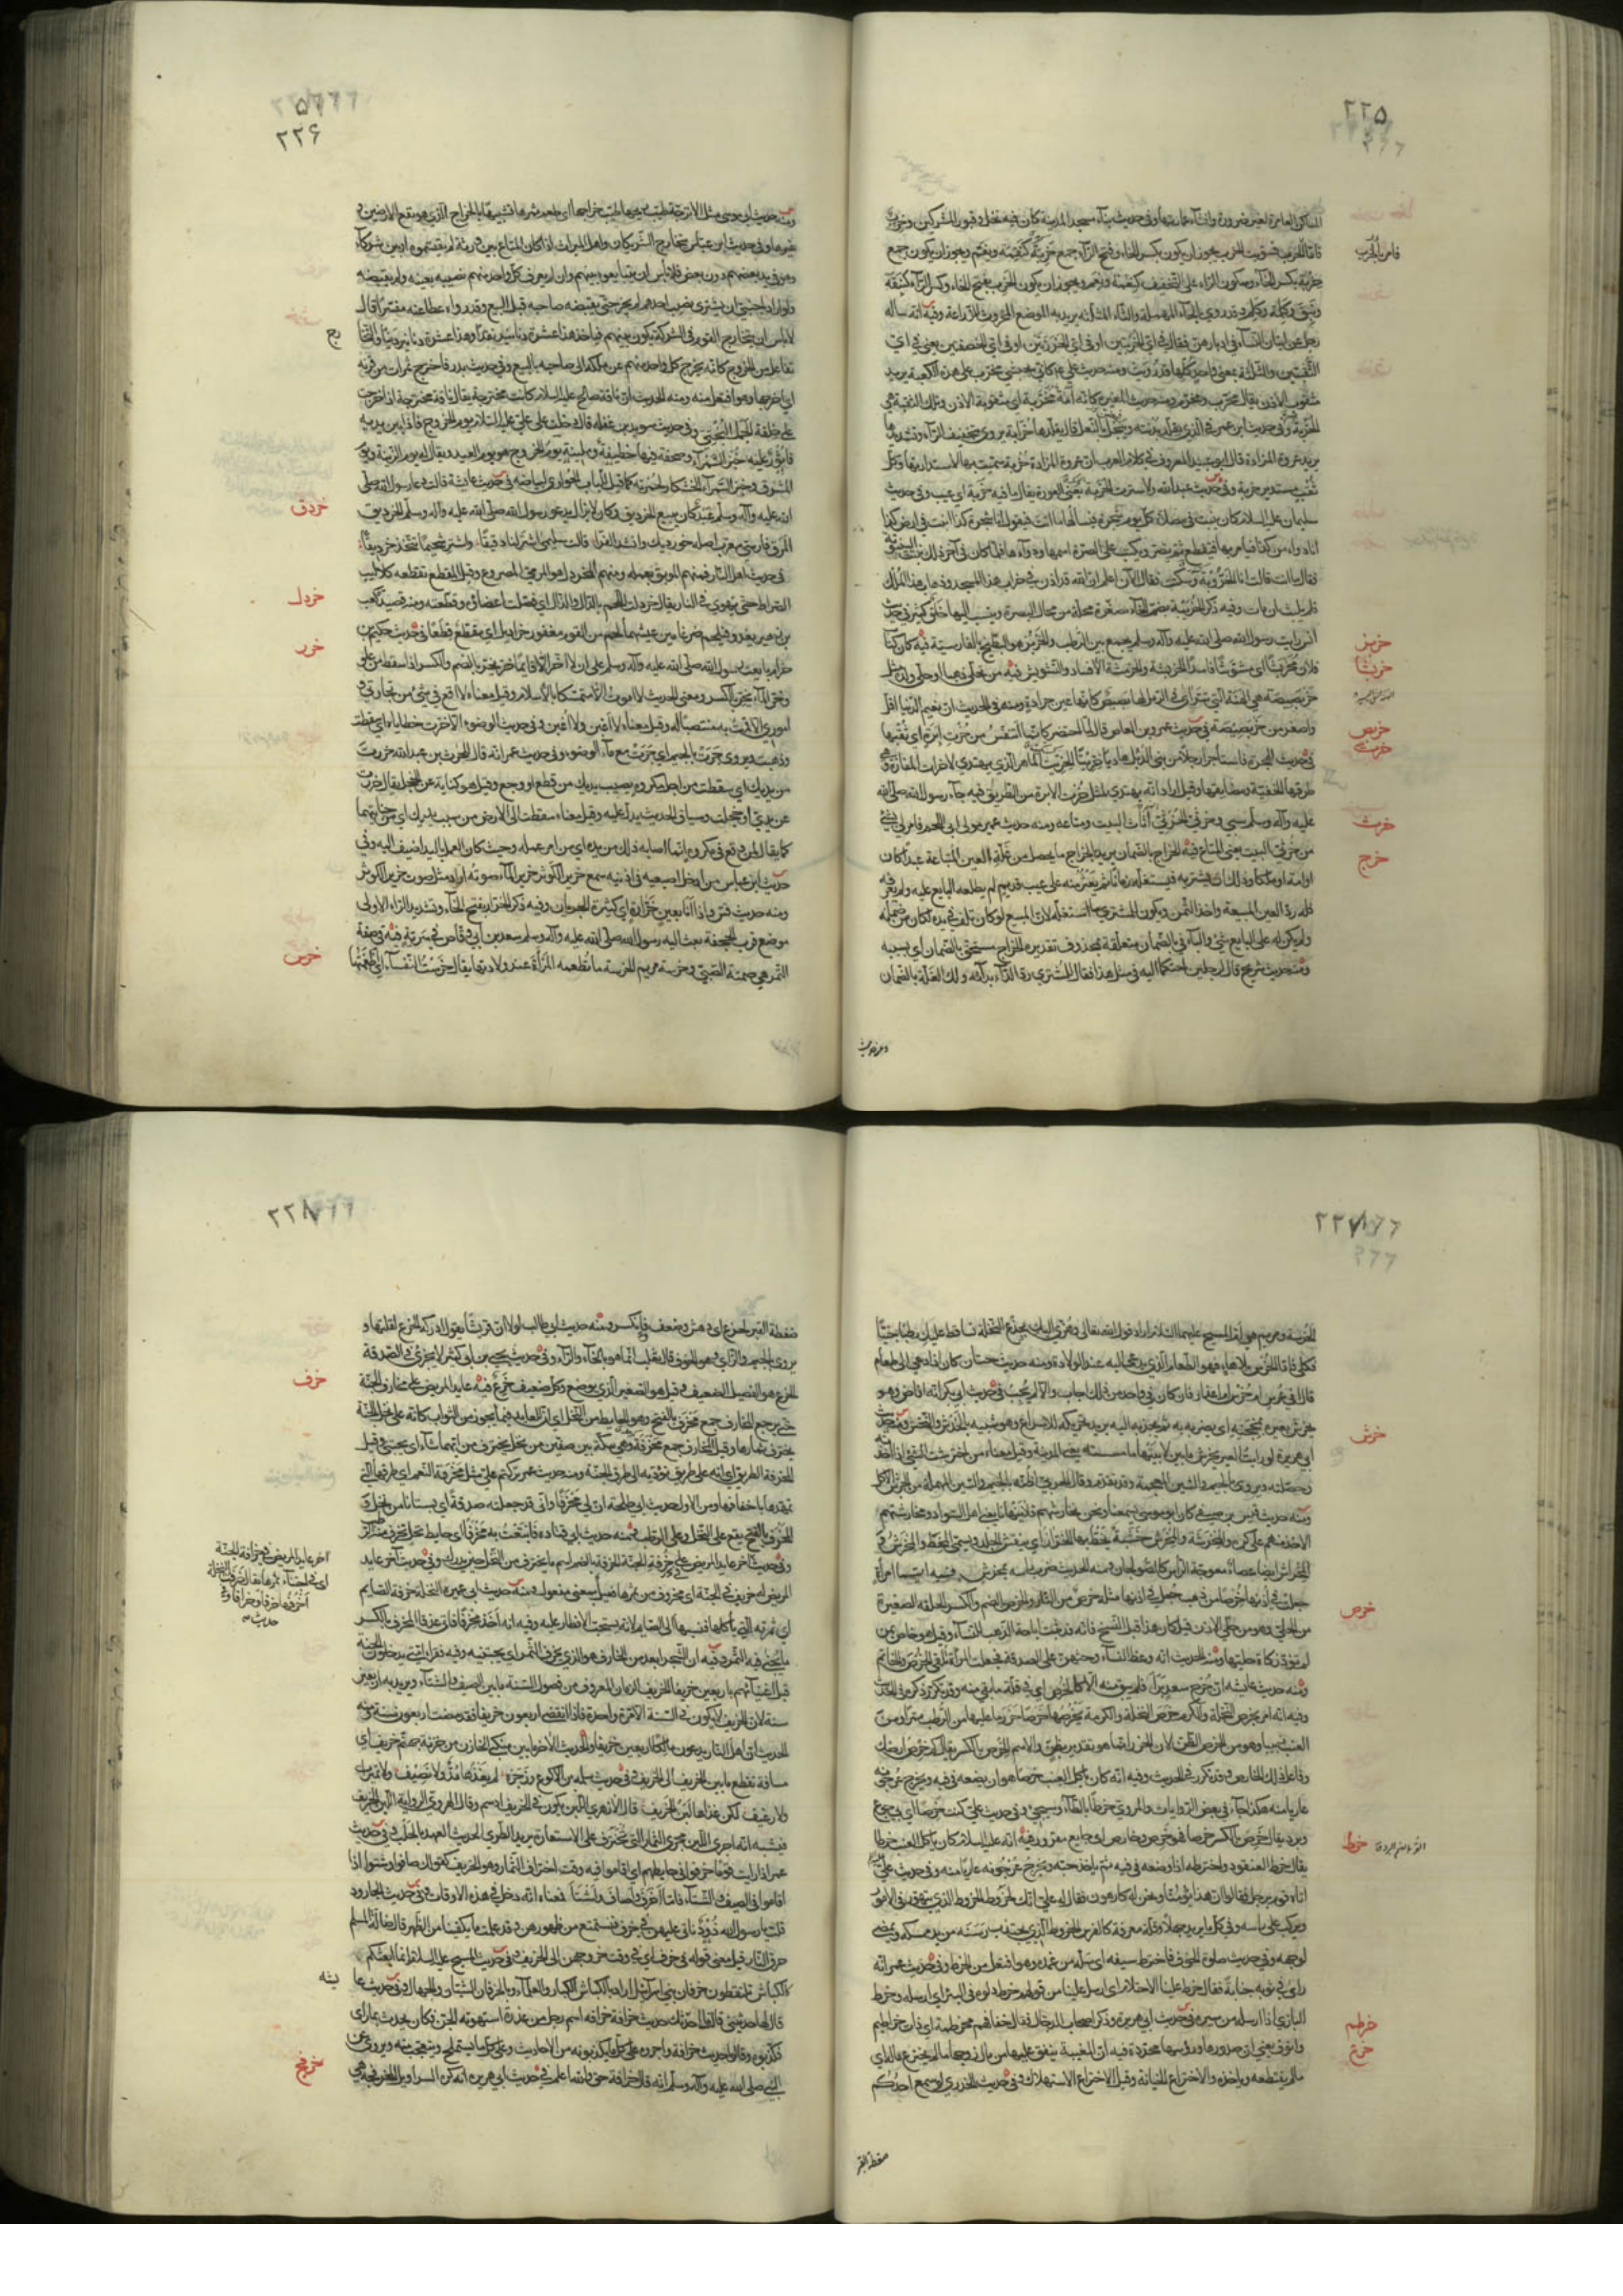 ٢٢٥
المساكن العامرة لغير ضرورة وانشآء عمارتها وفى حديث بنآء مسجد المدينة كان فيه نخل وقبور المشركين وخرب
فامر بالخرب
فسويت الخرب يجوز ان يكون بكسر الخاء وفتح الرآء جمع خربة كنقمة ونقم ويجوز ان يكون جمع
خربة بكسر الخآء وسكون الرآء على التخفيف كنعمة ونعم ويجوز ان يكون الخرب بفتح الخاء وكسر الرآء كنبقة
ونبق وكلمة وكلم وقد روى بالحآء المهملة والثآء المثلثة يريد به الموضع المحروث للزراعة وفيه انه ساله
رجل عن اتيان النسآء فى ادبارهن فقال فى اى الخربتين او فى اى الخرزتين او فى اى الخصفتين يعنى فى اى
الثقبتين والثلاثة بمعنى واحد وكلها قد رويت ومنه حديث على كانى بحبشى مخرب على هذه الكعبة يريد
مثقوب الاذن يقال مخرب ومخرم ومنه حديث المغيرة كانه امة مخربة اى مثقوبة الاذن وتلك الثقبة هى
الخربة وفى حديث ابن عمر فى الذى يقلد بدنته ويبخل بالنعل قال يقلدها خرابة يروى بتخفيف الرآء وتشديدها
يريد عروة المزادة قال ابو عبيد المعروف فى كلام العرب ان عروة المزادة خربة سميت بها لاستدارتها وكل
ثقب مستدير خربة وفى حديث عبد الله ولا سترت الخربة يعنى العورة يقال ما فيه خربة اى عيب وفى حديث
سليمان عليه السلام كان ينبت فى مصلاه كل يوم شجرة فيسألها ما انت فتقول انا شجرة كذا انبت فى ارض كذا
انا دواء من كذا فيامر بها فتقطع ثم تصر ويكتب على الصرة اسمها ودوآءها فلما كان فى آخر ذلك نبتت الينبوتة
فقال ما انت قالت انا الخروبة وسكتت فقال الآن اعلم ان الله قد اذن فى خراب هذا المسجد وذهاب هذا الملك
فلم يلبث ان مات وفيه ذكر الخريبة بضم الخآء مصغرة محلة من محال البصرة وينسب اليها خلق كثير فى حديث
خربز
انس رايت رسول الله صلى الله عليه وآله وسلم يجمع بين الرطب والخربز هو البطيخ بالفارسية فيه كان كتاب
خربش
فلان مخربشا اى مشوشا فاسدا الخربشة والخرمشة الافساد والتشويش فيه من تحلى ذهبا او حلى ولده مثل
خربص
خربصيصة هى الهنة التى تترآءى فى الرمل لها بصيص كانها عين جرادة ومنه فى الحديث ان نعيم الدنيا اقل
واصغر من خربصيصة فى حديث عمرو بن العاص قال لما احتضر كانما اتنفس من خرت ابرة اى ثقبها
خرت
فى حديث الهجرة فاستأجر رجلا من بنى الديل هاديا خريتا الخريت الماهر الذى يهتدى لاخرات المفازة وهى
طرقها الخفية ومضايقها وقيل اراد انه يهتدى لمثل خرت الابرة من الطريق فيه جآء رسول الله صلى الله
خرث
عليه وآله وسلم سبى وخرثى الخرثى اثاث البيت ومتاعه ومنه حديث عمير مولى ابى اللحم فامر لى بشئ
خرج
من خرثى البيت يعنى المتاع فيه الخراج بالضمان يريد بالخراج ما يحصل من غلة العين المبتاعة عبدا كان
او امة او ملكا وذلك ان يشتريه فيستغله زمانا ثم يعثر منه على عيب قديم لم يطلعه البايع عليه ولم يعرفه
فله رد العين المبيعة واخذ الثمن ويكون للمشترى ما استغله لان المبيع لو كان تلف فى يده لكان من ضمانه
ولم يكن له على البايع شئ والبآء فى بالضمان متعلقة بمحذوف تقديره الخراج مستحق بالضمان اى بسببه
ومنه حديث شريح قال لرجلين احتكما اليه فى مثل هذا فقال للمشترى رد الدآء بدآئه ولك الغلة بالضمان
ومنه حديث
٢٢۶
ومنه حديث ابى موسى مثل الاترجة طيب ريحها طيب خراجها اى طعم ثمرها تشبيها بالخراج الذى هو نفع الارضين و
غيرها وفى حديث ابن عباس يتخارج الشريكان واهل الميراث اى اذا كان المتاع بين ورثة لم يقتسموه او بين شركآء
وهو فى يد بعضهم دون بعض فلا بأس ان يتبايعوه بينهم وان لم يعرف كل واحد منهم نصيبه بعينه ولم يقبضه
ولو اراد اجنبى ان يشترى نصيب احدهم لم يجز حتى يقبضه صاحبه قبل البيع وقد رواه عطا عنه مفسرا قال
لا باس ان يتخارج القوم فى الشركة تكون بينهم فياخذ هذا عشرة دنانير نقدا وهذا عشرة دنانير دينا والتخا
رج
تفاعل من الخروج كانه يخرج كل واحد منهم عن ملكه الى صاحبه بالبيع وفى حديث بدر فاخترج تمرات من قرنه
اى اخرجها وهو افتعل منه ومنه الحديث ان ناقة صالح عليه السلام كانت مخترجة يقال ناقة مخترجة اذا خرجت
على خلقة الجمل البختى وفى حديث سويد بن غفلة قال دخلت على على عليه السلام يوم الخروج فاذا بين يديه
فاثور عليه خبز السمرآء وصحفة فيها خطيفة وملبنة يوم الخروج هو يوم العيد ويقال له يوم الزينة ويوم
المشرق وخبز السمرآء الخشكار لحمرته كما قيل للباب الحوارى لبياضه فى حديث عايشة قالت دعا رسول الله صلى
خردق
الله عليه وآله وسلم عبد كان يبيع الخرديق وكان لا يزال يدعو رسول الله صلى الله عليه وآله وسلم الخرديق
المرق فارسى معرب اصله خورديك وانشد الفرآء قالت سليمى اشتر لنا دقيقا واشتر شحيما نتخذ خرديقا
خردل
فى حديث اهل النار فمنهم الموبق بعمله ومنهم المخردل هو المرمى المصروع وقيل المقطع تقطعه كلاليب
الصراط حتى يهوى فى النار يقال خردلت اللحم بالدال والذال اى فصلت اعضاءه وقطعته ومنه قصيد كعب
بن زهير يغدو فيلحم ضرغامين عيشهما لحم من القوم معفور خراديل اى مقطع قطعا فى حديث حكيم بن
خرر
حزام بايعت رسول الله صلى الله عليه وآله وسلم على ان لا اخر الا قايما خر يخر بالضم والكسر اذا سقط من علو
وخر المآء يخر بالكسر ومعنى الحديث لا اموت الا متمسكا بالاسلام وقيل معناه لا اقع فى شئ من تجارتى و
امورى الا قمت به منتصبا له وقيل معناه لا اغبن ولا اغبن وفى حديث الوضوء الا خرت خطاياه اى سقطت
وذهبت ويروى جرت بالجيم اى جرت مع مآء الوضوء وفى حديث عمر انه قال للحرث بن عبد الله خررت
من يديك اى سقطت من اجل مكروه يصيب يديك من قطع او وجع وقيل هو كناية عن الخجل يقال خررت
عن يدى اى خجلت وسياق الحديث يدل عليه وقيل معناه سقطت الى الارض من سبب يديك اى من جنايتهما
كما يقال لمن وقع فى مكروه انما اصابه ذلك من يده اى من امر عمله وحيث كان العمل باليد اضيف اليه وفى
حديث ابن عباس من ادخل اصبعيه فى اذنيه سمع خرير الكوثر خرير المآء صوته اراد مثل صوت خرير الكوثر
ومنه حديث قس واذا انا بعين خرارة اى كثيرة الجريان وفيه ذكر الخرار بفتح الخآء وتشديد الرآء الاولى
موضع قرب الجحفة بعث اليه رسول الله صلى الله عليه وآله وسلم سعد بن ابى وقاص فى سرية فيه فى صفة
خرس
التمر هى صمتة الصبى وخرسة مريم الخرسة ما تطعمه المرأة عند ولادتها يقال خرست النفسآء اى اطعمتها
٢٢٧
الخرسة ومريم هى ام المسيح عليهما السلام اراد قول الله تعالى وهزى اليك بجذع النخلة تساقط عليك رطبا جنيا
فكلى فاما الخرس بلا هاء فهو الطعام الذى يدعى اليه عند الولادة ومنه حديث حسان كان اذا دعى الى طعام
قال فى عرس ام خرس ام اعذار فان كان فى واحد من ذلك اجاب والا لم يجب فى حديث ابى بكر انه افاض وهو
خرش
يخرش بعيره بمحجنه اى يضربه به ثم يجذبه اليه يريد تحريكه للاسراع وهو شبيه بالخدش والنخس ومنه حديث
ابى هريرة لو رايت العير تخرش ما بين لابتيها ما مسسته يعنى المدينة وقيل معناه من اخترشت الشئ اذا اخذته
وحصلته ويروى بالجيم والشين المعجمة وقد تقدم وقال الحربى اظنه بالجيم والسين المهملة من الجرس الاكل
ومنه حديث قيس بن صيفى كان ابو موسى يسمعنا ونحن نخارشهم فلا ينهانا يعنى اهل السواد ومخارشتهم
الاخذ منهم على كره والمخرشة والمخرش خشبة يخط بها الخراز اى ينقش الجلد ويسمى المخط والمخرش و
المخراش ايضا عصا معوجة الراس كالصولجان ومنه الحديث ضرب راسه بمخرش فيه ايما امرأة
خرص
جعلت فى اذنها خرصا من ذهب جعل فى اذنها مثله خرصا من النار الخرص بالضم والكسر الحلقة الصغيرة
من الحلى وهو من حلى الاذن قيل كان هذا قبل النسخ فانه قد ثبت اباحة الذهب للنسآء وقيل هو خاص بمن
لم تؤد زكاة حليها ومنه الحديث انه وعظ النسآء وحثهن على الصدقة فجعلت المرأة تلقى الخرص والخاتم
ومنه حديث عايشة ان جرح سعد برأ فلم يبق منه الا كالخرص اى فى قلة ما بقى منه وقد تكرر ذكره فى الحديث
وفيه انه امر بخرص النخل والكرم خرص النخلة والكرمة يخرصها خرصا اذا حزر ما عليها من الرطب تمرا ومن
العنب زبيبا وهو من الخرص الظن لان الحزر انما هو تقدير بظن والاسم الخرص بالكسر يقال كم خرص ارضك
وفاعل ذلك الخارص وقد تكرر فى الحديث وفيه انه كان ياكل العنب خرصا هو ان يضعه فى فيه ويخرج عرجونه
عاريا منه هكذا جآء فى بعض الروايات والمروى خرطا بالطآء وسيجئ وفى حديث على كنت خرصا اى بى جوع
خرط
وبرد يقال خرص بالكسر خرصا فهو خرص وخارص اى جايع مقرور فيه انه عليه السلام كان ياكل العنب خرطا
يقال خرط العنقود واخترطه اذا وضعه فى فيه ثم ياخذ حبه ويخرج عرجونه عاريا منه وفى حديث على
اتاه قوم برجل فقالوا ان هذا يؤمنا ونحن له كارهون فقال له على انك لخروط الخروط الذى يتهور فى الامور
ويركب راسه فى كل ما يريد جهلا وقلة معرفة كالفرس الخروط الذى يجتذب رسنه من يد ممسكه ويمضى
لوجهه وفى حديث صلوة الخوف فاخترط سيفه اى سله من غمده وهو افتعل من الخرط وفى حديث عمر انه
راى فى ثوبه جنابة فقال خرط علينا الاحتلام اى ارسل علينا من قولهم خرط دلوه فى البئر اى ارسله وخرط
خرطم
البازى اذا ارسله من سيره فى حديث ابى هريرة وذكر اصحاب الدجال فقال خفافهم مخرطمة اى ذات خراطيم
خرع
وانوف يعنى ان صدورها ورؤسها محددة فيه ان المغيبة ينفق عليها من مال زوجها ما لم تخترع ماله اى
مالم تقتطعه وتاخذه والاختراع الخيانة وقيل الاختراع الاستهلاك وفى حديث الخدرى لو سمع احدكم
ضغطة القبر
٢٢٨
ضغطة القبر لخرع اى دهش وضعف وانكسر ومنه حديث ابى طالب لولا ان قريشا تقول ادركه الخرع لقلتها و
يروى بالجيم والزاى وهو الخوف قال ثعلب انما هو بالخآء والرآء وفى حديث يحيى بن ابى كثير لا يجزئ فى الصدقة
خرف
الخرع هو الفصيل الضعيف وقيل هو الصغير الذى يرضع وكل ضعيف خرع فيه عايد المريض على مخارف الجنة
حتى يرجع المخارف جمع مخرف بالفتح وهو الحايط من النخل اى ان العايد فيما يحوز من الثواب كانه على نخل الجنة
يخترف ثمارها وقيل المخارف جمع مخرفة وهى سكة بين صفين من نخل يخترف من ايهما شآء اى يجتنى وقيل
المخرفة الطريق اى انه على طريق تؤديه الى طريق الجنة ومنه حديث عمر تركتكم على مثل مخرفة النعم اى طرقها التى
تمهدها باخفافها ومن الاول حديث ابى طلحة ان لى مخرفا وانى قد جعلته صدقة اى بستانا من نخل و
المخرف بالفتح يقع على النخل وعلى الرطب ومنه حديث ابى قتادة فابتعت به مخرفا اى حايط نخل يخرف منه الرطب
وفى حديث آخر عايد المريض فى خرفة الجنة الخرفة بالضم اسم ما يخترف من النخل حين يدرك وفى حديث آخر عايد
آخر عايد المريض فى خرافة الجنة
اى فى اجتنآء ثمرها يقال خرفت النخلة
اخرفها خرفا وخرافا وفى
حديث
المريض له خريف فى الجنة اى مخروف من ثمرها فعيل بمعنى مفعول ومنه حديث ابى عمرة النخلة خرفة الصايم
اى ثمرته التى ياكلها ونسبها الى الصايم لانه يستحب الافطار عليه وفيه انه اخذ مخرفا فاتى عذقا المخرف بالكسر
ما يجتنى فيه الثمر وفيه ان الشجر ابعد من الخارف هو الذى يخرف الثمر اى يجتنيه وفيه فقرآء امتى يدخلون الجنة
قبل اغنيآئهم باربعين خريفا الخريف الزمان المعروف من فصول السنة ما بين الصيف والشتآء ويريد به اربعين
سنة لان الخريف لا يكون فى السنة الا مرة واحدة فاذا انقضى اربعون خريفا فقد مضت اربعون سنة ومنه
الحديث ان اهل النار يدعون مالكا اربعين خريفا والحديث الآخر ما بين منكبى الخازن من خزنة جهنم خريف اى
مسافة تقطع ما بين الخريف الى الخريف وفى حديث سلمة بن الاكوع ورجزه لم يغذها مد ولا نصيف ولا تميرات
ولا رغيف لكن غذاها لبن الخريف قال الازهرى اللبن يكون فى الخريف ادسم وقال الهروى الرواية اللبن الخريف
فيشبه انه اجرى اللبن مجرى الثمار التى تخترف على الاستعارة يريد الطرى الحديث العهد بالحلب وفى حديث
عمر اذا رايت قوما خرفوا فى حايطهم اى اقاموا فيه وقت اختراف الثمار وهو الخريف كقولك صافوا وشتوا اذا
اقاموا فى الصيف والشتآء فاما اخرف واصاف واشتا فمعناه انه دخل فى هذه الاوقات وفى حديث الجارود
قلت يا رسول الله ذود ناتى عليهن فى خرف فنستمتع من ظهورهن وقد علمت ما يكفينا من الظهر قال ضالة المسلم
حرق النار قيل معنى قوله فى خرف اى فى وقت خروجهن الى الخريف وفى حديث المسيح عليه السلام انما ابعثكم
كالكباش تلتقطون خرفان بنى اسرآئيل اراد بالكباش الكبار والعلمآء وبالخرفان الشبان والجهال وفى حديث عا
يشه
قال لها حدثينى قالت ما احدثك حديث خرافة خرافة اسم رجل من عذرة استهوته الجن فكان يحدث بما راى
فكذبوه وقالوا حديث خرافة واجروه على كل ما يكذبونه من الاحاديث وعلى كل ما يستملح ويتعجب منه ويروى عن
خرفج
النبى صلى الله عليه وآله وسلم انه قال خرافة حق والله اعلم فى حديث ابى هريرة انه كره السراويل المخرفجة هى